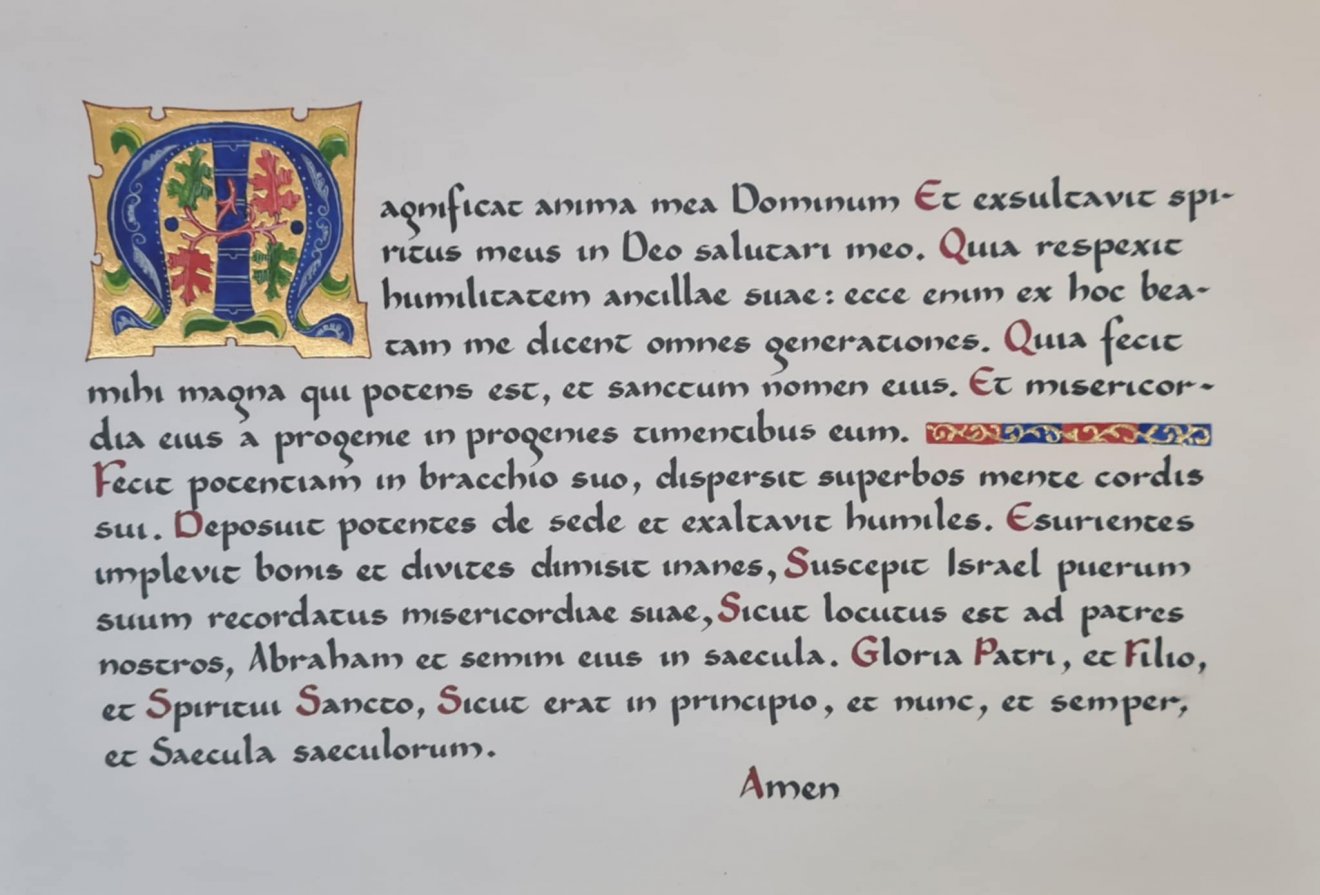 Magnificat anima mea Dominum Et exsultavit spi-
ritus meus in Deo salutari meo. Quia respexit
humilitatem ancillae suae: ecce enim ex hoc bea-
tam me dicent omnes generationes. Quia fecit
mihi magna qui potens est, et sanctum nomen eius. Et misericor-
dia eius a progenie in progenies timentibus eum.
Fecit potentiam in bracchio suo, dispersit superbos mente cordis
sui. Deposuit potentes de sede et exaltavit humiles. Esurientes
implevit bonis et divites dimisit inanes, Suscepit Israel puerum
suum recordatus misericordiae suae, Sicut locutus est ad patres
nostros, Abraham et semini eius in saecula. Gloria Patri, et Filio,
et Spiritui Sancto, Sicut erat in principio, et nunc, et semper,
et Saecula saeculorum.
Amen